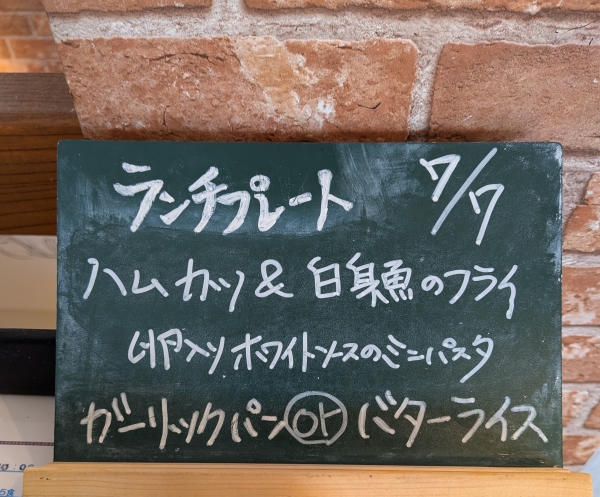 ランチプレート 7/7
ハムカツ & 白身魚のフライ
卵入りホワイトソースのミニパスタ
ガーリックパン or バターライス